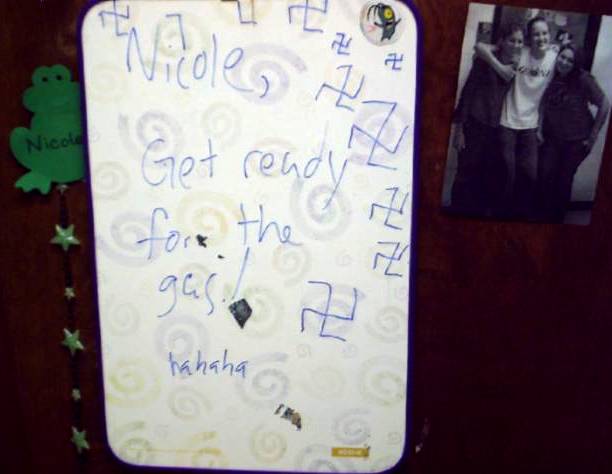 Nicole,
Nicole
Get ready
for the
gas!
hahaha